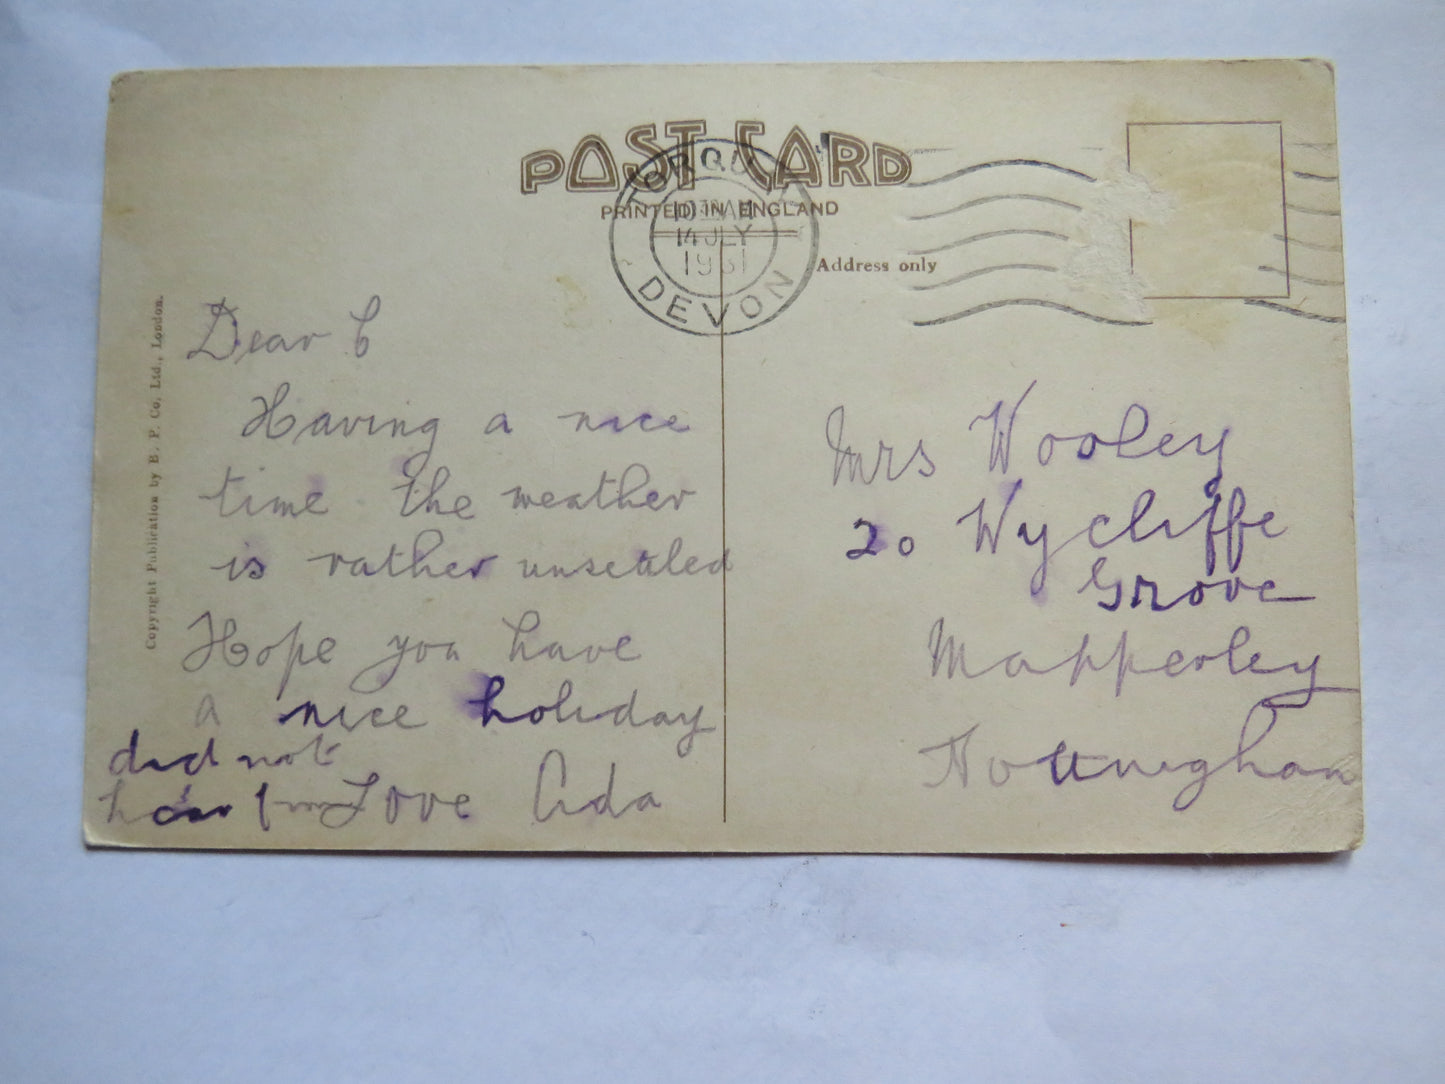 POST CARD
PRINTED IN ENGLAND
TORQUAY
14 JLY
1931
DEVON
Address only
Copyright Publication by B. P. Co. Ltd., London.
Dear C
Having a nice
time the weather
is rather unsetaled
Hope you have
a nice holiday
did not
hear from
Love Ada
Mrs Wooley
20 Wycliffe
Grove
Mapperley
Nottingham